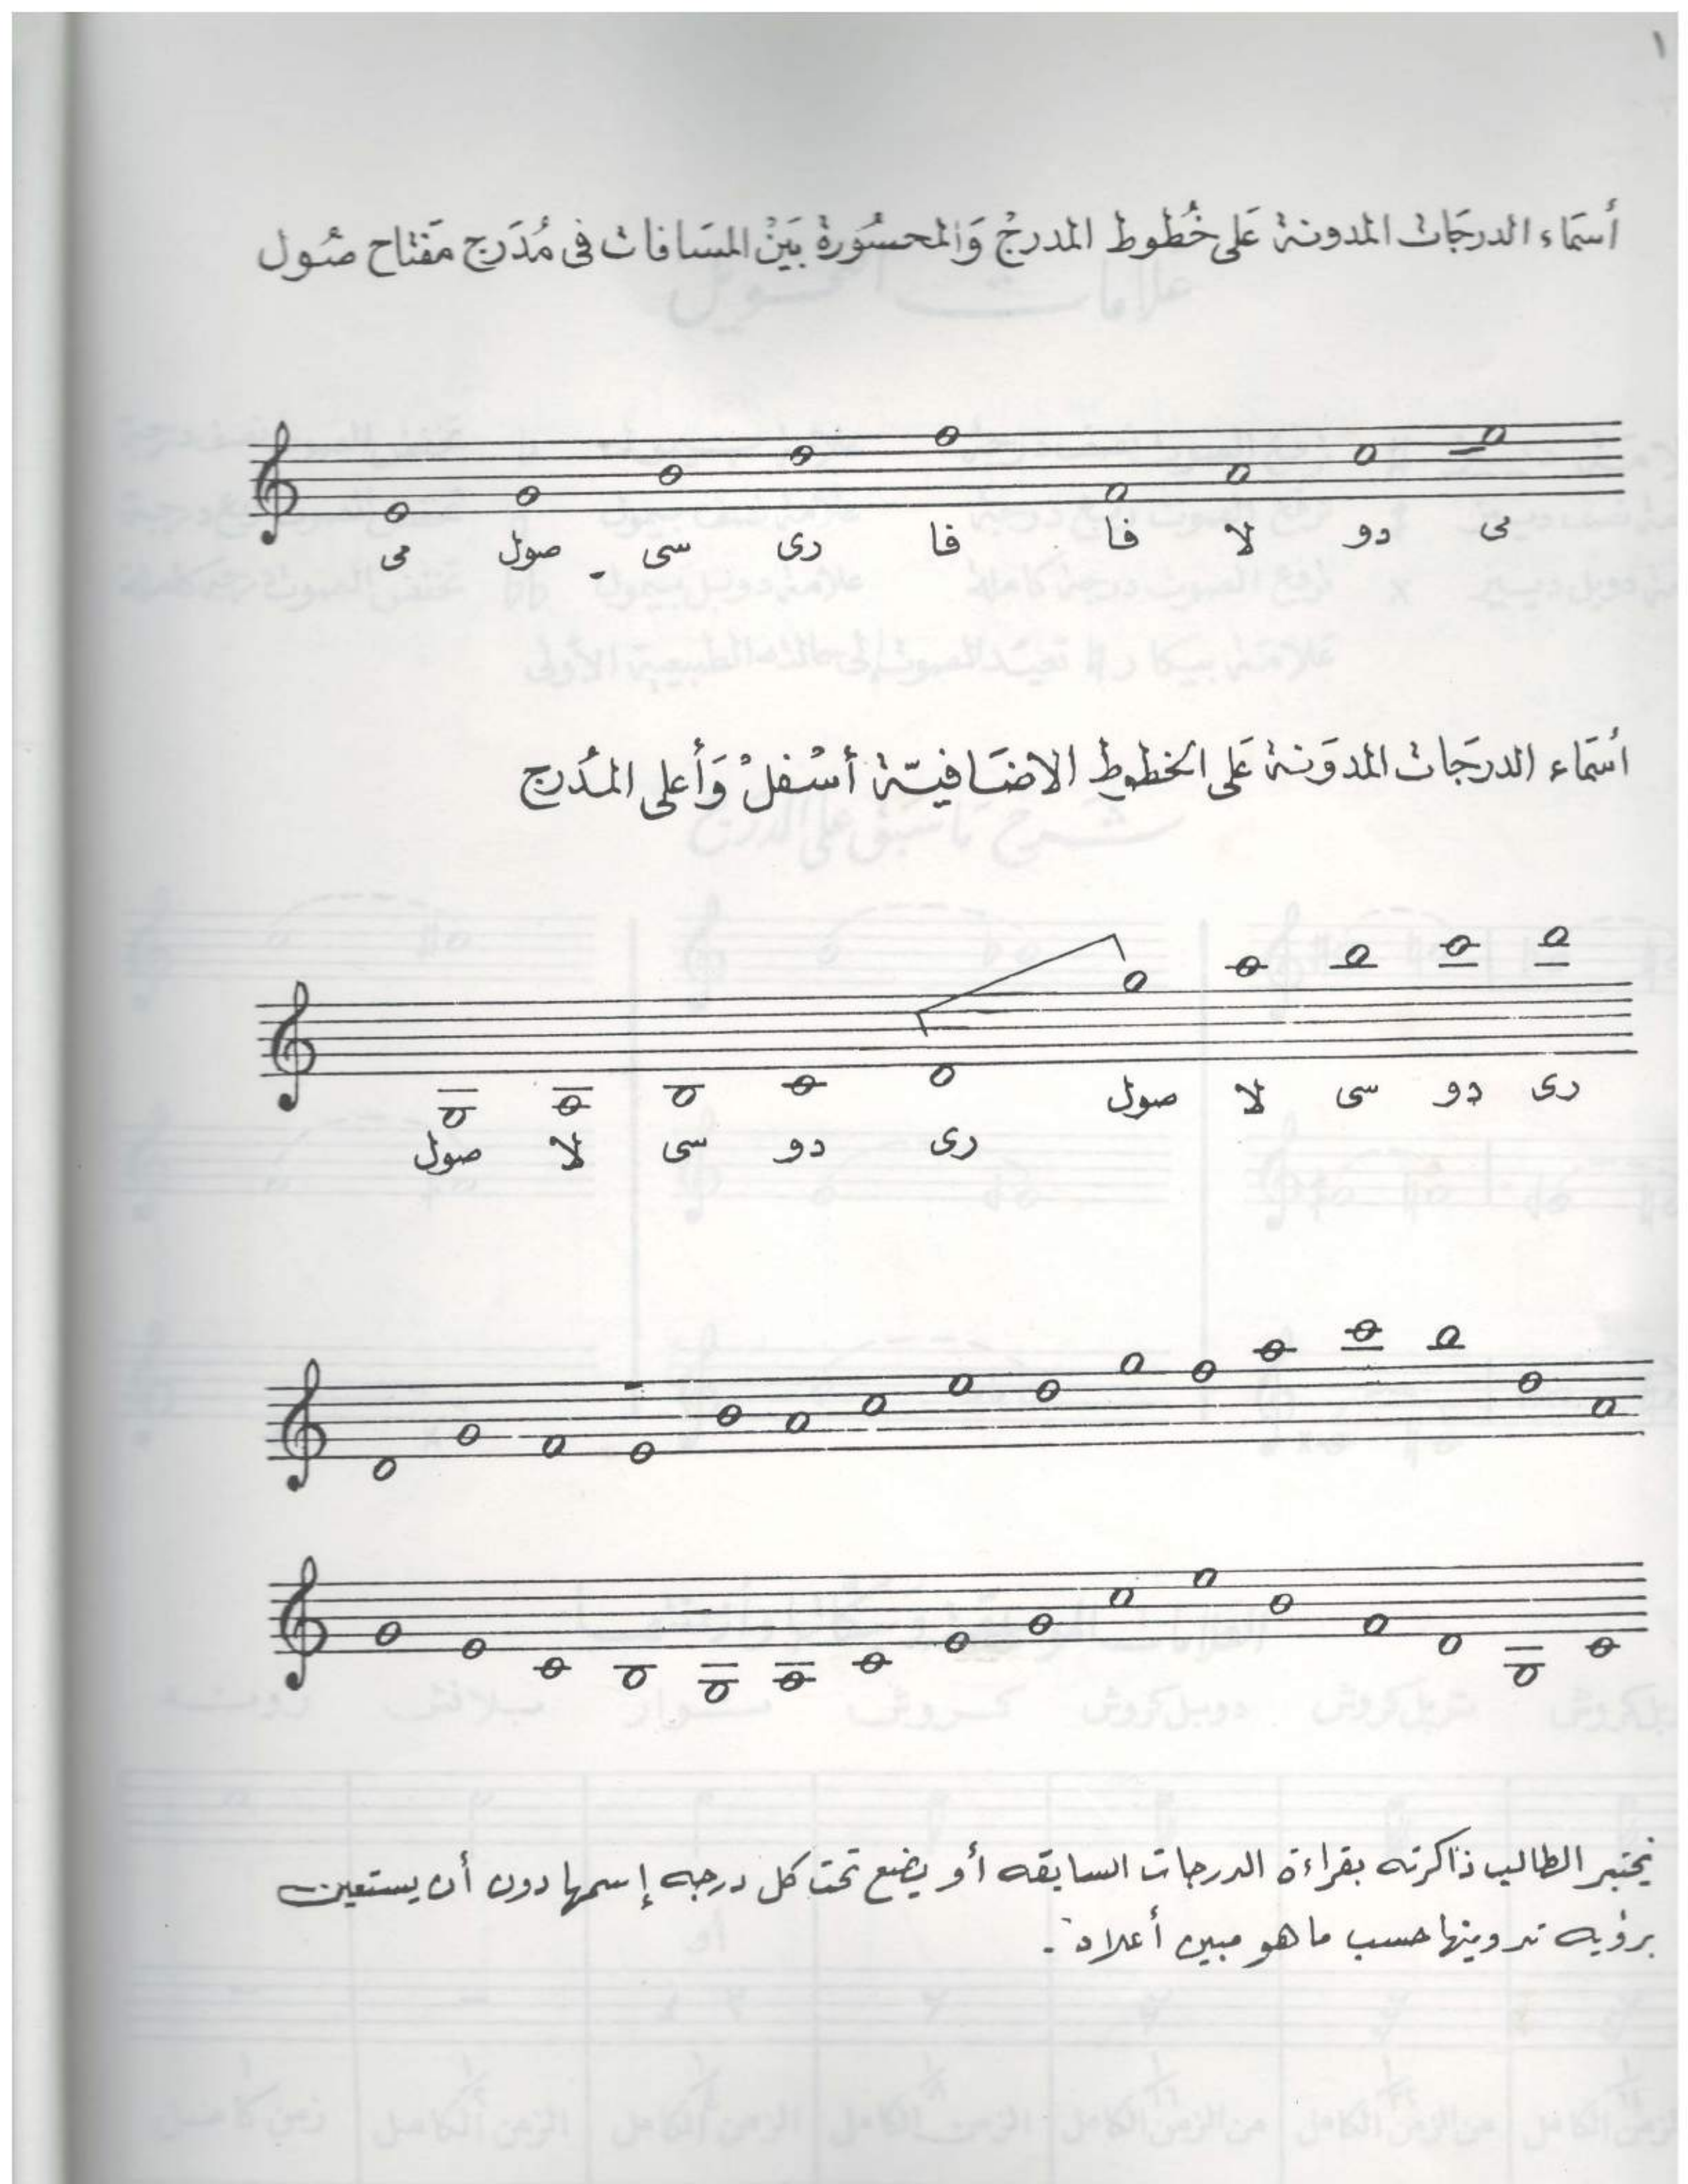 ١
أسماء الدرجات المدونة على خطوط المدرج والمحسورة بين المسافات فى مدرج مفتاح صول
مى صول سى رى فا فا لا دو مى
أسماء الدرجات المدونة على الخطوط الاضافية أسفل وأعلى المدرج
صول لا سى دو رى
صول لا سى دو رى
يختبر الطالب ذاكرته بقراءة الدرجات السابقه أو يضع تحت كل درجه إسمها دون أن يستعين
برؤيه تدوينها حسب ما هو مبين أعلاه .